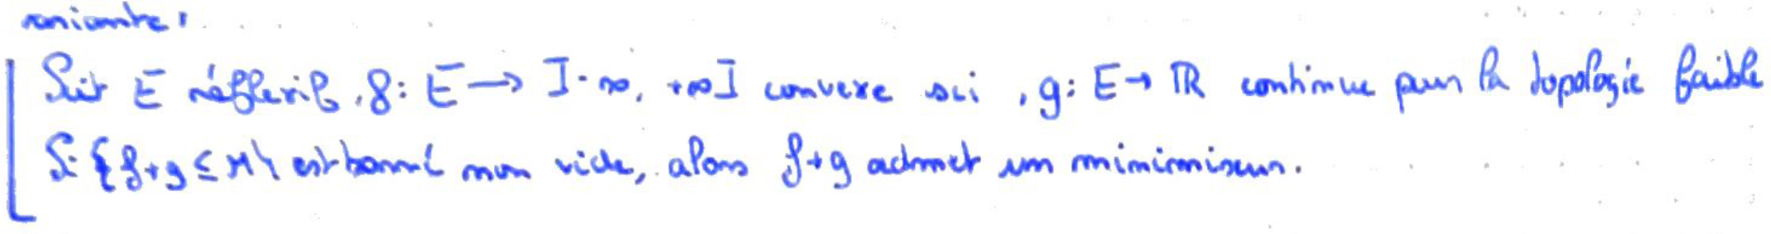 variante :
Soit E réflexif, f : E → ]-∞, +∞] convexe sci, g : E → ℝ continue pour la topologie faible
Si {f+g ≤ M} est borné non vide, alors f+g admet un minimiseur.